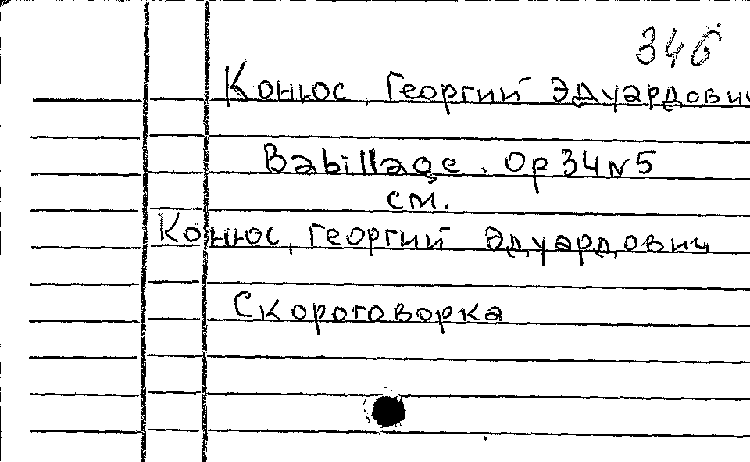 346
Конюс, Георгий Эдуардович
Babillage. Op 34 N 5
см.
Конюс, Георгий Эдуардович
Скороговорка